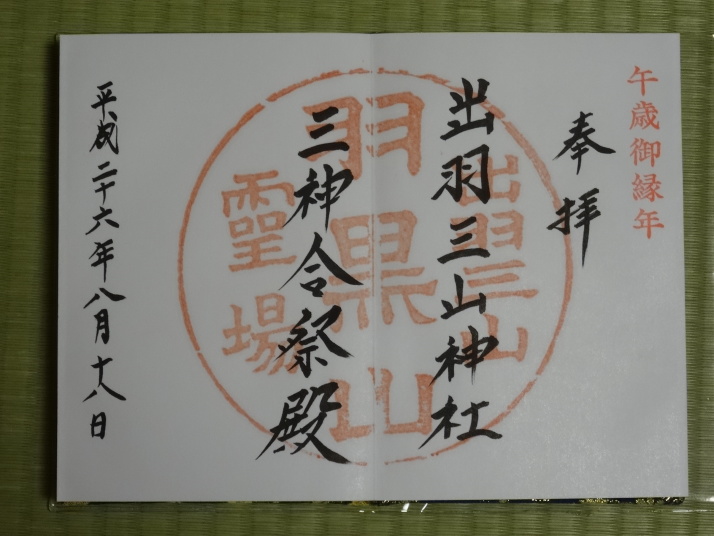 午歳御縁年
奉拝
出羽三山神社
三神合祭殿
平成二十六年八月十八日
出羽三山
羽黒山
霊場